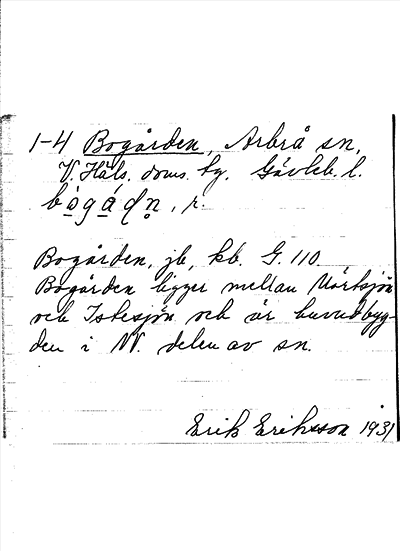 1-4 Bogården, Arbrå sn,
V. Häls. doms. hg. Gävleb. l.
bògádn̥, r.
Bogården, jb, kb. G. 110.
Bogården ligger mellan Vörtsjön
och Istesjön och är huvudbyg-
den i NV. delen av sn.
Erik Eriksson 1931